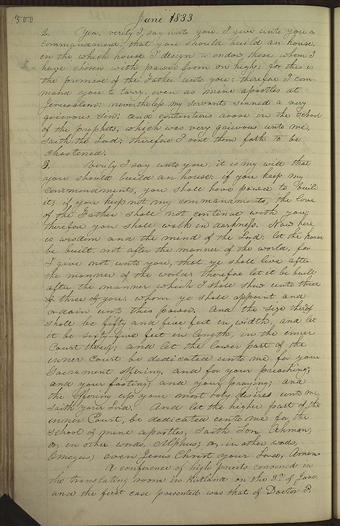 300 June 1833
2. Yea, verily I say unto you, I give unto you a
commandment, that you should build an house,
in the which house I design to endow those whom I
have chosen with power from on high; for this is
the promise of the Father unto you; therefore I com
mand you to tarry, even as mine apostles at
Jerusalem; nevertheless my servants sinned a very
grievous sin; and contentions arose in the School
of the prophets, which was very grievous unto me,
saith the Lord; therefore I sent them forth to be
chastened.
3. Verily I say unto you, it is my will that
you should build an house; if you keep my
commandments, you shall have power to built
it; if you keep not my commandments, the love
of the Father shall not continue with you;
therefore you shall walk in darkness. Now here
is wisdom and the mind of the Lord; let the house
be built, not after the manner of the world, for
I give not unto you, that ye shall live after
the manner of the world; therefore let it be built
after the manner which I shall shew unto three
of you, whom ye shall appoint and
ordain unto this power. And the size thereof
shall be fifty and five feet in width, and let
it be sixty five feet in length, in the inner
Court thereof; and let the lower part of the
inner Court be dedicated unto me for your
Sacrament offering, and for your preaching;
and your fasting; and your praying; and
the offering up your most holy desires unto me,
saith your Lord. And let the higher part of the
inner Court, be dedicated unto me for the
School of mine apostles, saith Son, Ahman;
or, in other words, Alphus; or, in other words,
Omegus; even Jesus Christ your Lord, Amen.
A conference of high priests convened in
the translating room in Kirtland on the of June
and the first case presented was that of Doctor P.